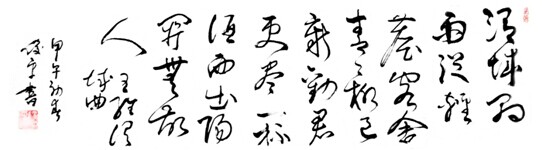 渭城朝
雨浥輕
塵客舍
青青柳色
新勸君
更盡一杯
酒西出陽
關無故
人 王維渭
城曲
甲午初春
書